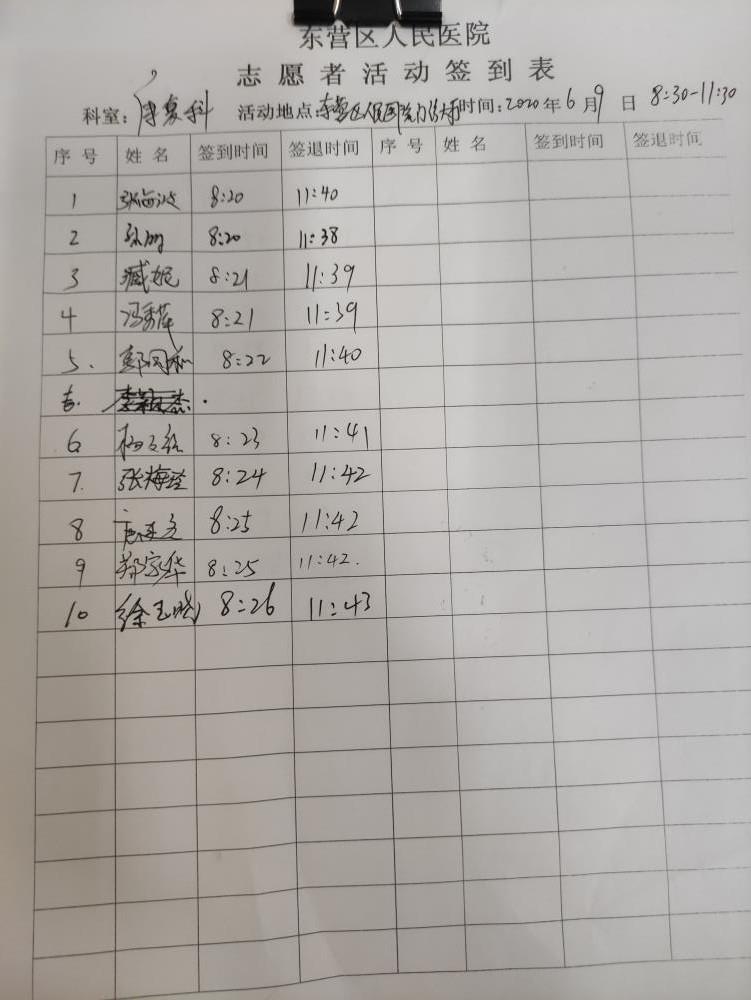 东营区人民医院
志愿者活动签到表
科室：康复科 活动地点：东营区人民医院 时间：2020年6月9日 8:30-11:30
序号 姓名 签到时间 签退时间 序号 姓名 签到时间 签退时间
1 张海波 8:20 11:40
2 8:20 11:38
3 臧妮 8:21 11:39
4 冯秀萍 8:21 11:39
5. 8:22 11:40
6 8:23 11:41
7. 张梅 8:24 11:42
8 8:25 11:42
9 郑家华 8:25 11:42.
10 徐玉晓 8:26 11:43